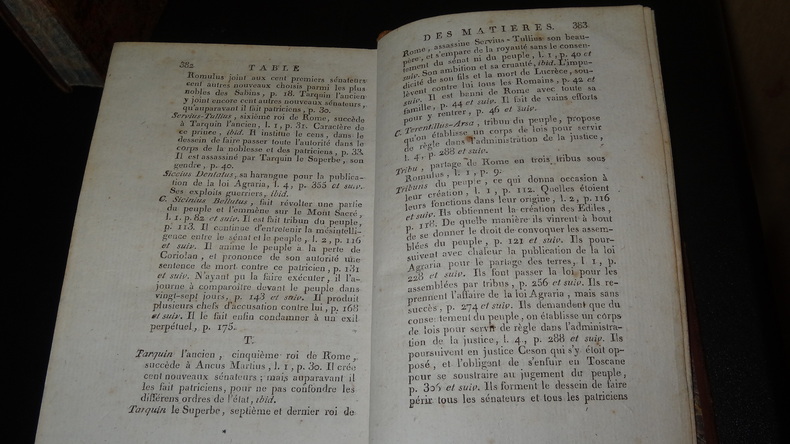 382 TABLE
Romulus joint aux cent premiers sénateurs
cent autres nouveaux choisis parmi les plus
nobles des Sabins, p. 18. Tarquin l'ancien
y joint encore cent autres nouveaux sénateurs,
qu'auparavant il fait patriciens, p. 30.
Servius-Tullius, sixième roi de Rome, succède
à Tarquin l'ancien, l. 1, p. 31. Caractère de
ce prince, ibid. Il institue le cens, dans le
dessein de faire passer toute l'autorité dans le
corps de la noblesse et des patriciens, p. 33.
Il est assassiné par Tarquin le Superbe, son
gendre, p. 40.
Siccius Dentatus, sa harangue pour la publica-
tion de la loi Agraria, l. 4, p. 355 et suiv.
Ses exploits guerriers, ibid.
C. Sicinius Bellutus, fait révolter une partie
du peuple et l'emmène sur le Mont Sacré,
l. 1. p. 82 et suiv. Il est fait tribun du peuple,
p. 113. Il continue d'entretenir la mésintelli-
gence entre le sénat et le peuple, l. 2, p. 116
et suiv. Il anime le peuple à la perte de
Coriolan, et prononce de son autorité une
sentence de mort contre ce patricien, p. 131
et suiv. N'ayant pu la faire exécuter, il l'a-
journe à comparoître devant le peuple dans
vingt-sept jours, p. 143 et suiv. Il produit
plusieurs chefs d'accusation contre lui, p. 168
et suiv. Il le fait enfin condamner à un exil
perpétuel, p. 175.
T.
Tarquin l'ancien, cinquième roi de Rome,
succède à Ancus Martius, l. 1, p. 30. Il crée
cent nouveaux sénateurs; mais auparavant il
les fait patriciens, pour ne pas confondre les
différens ordres de l'état, ibid.
Tarquin le Superbe, septième et dernier roi de
DES MATIERES. 383
Rome, assassine Servius-Tullius son beau-
père, et s'empare de la royauté sans le consen-
tement du sénat ni du peuple, l. 1, p. 40 et
suiv. Son ambition et sa cruauté, ibid. L'impu-
dicité de son fils et la mort de Lucrèce, sou-
lèvent contre lui tous les Romains, p. 42 et
suiv. Il est banni de Rome avec toute sa
famille, p. 44 et suiv. Il fait de vains efforts
pour y rentrer, p. 46 et suiv.
C. Terentillus-Arsa, tribun du peuple, propose
qu'on établisse un corps de lois pour servir
de règle dans l'administration de la justice,
l. 4, p. 288 et suiv.
Tribu, partage de Rome en trois tribus sous
Romulus, l. 1, p. 9.
Tribuns du peuple, ce qui donna occasion à
leur création, l. 1, p. 112. Quelles étoient
leurs fonctions dans leur origine, l. 2, p. 116
et suiv. Ils obtiennent la création des Ediles,
p. 118. De quelle manière ils vinrent à bout
de se donner le droit de convoquer les assem-
blées du peuple, p. 121 et suiv. Ils pour-
suivent avec chaleur la publication de la loi
Agraria pour le partage des terres, l 1, p.
228 et suiv. Ils font passer la loi pour les
assemblées par tribus, p. 256 et suiv. Ils re-
prennent l'affaire de la loi Agraria, mais sans
succès, p. 274 et suiv. Ils demandent que du
consentement du peuple, on établisse un corps
de lois pour servir de règle dans l'administra-
tion de la justice, l. 4, p. 288 et suiv. Ils
poursuivent en justice Ceson qui s'y étoit op-
posé, et l'obligent de s'enfuir en Toscane
pour se soustraire au jugement du peuple,
p. 305 et suiv. Ils forment le dessein de faire
périr tous les sénateurs et tous les patriciens